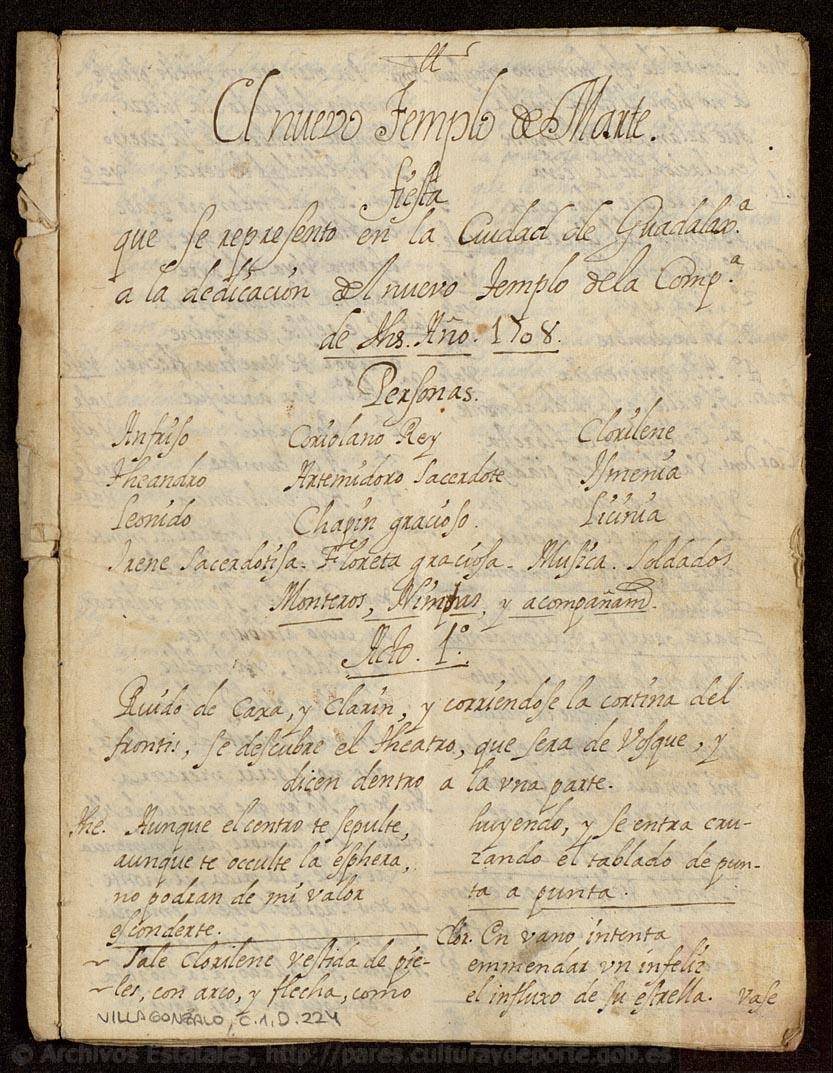 El nuevo Templo de Marte.
fiesta
que se represento en la Ciudad de Guadalax.ª
a la dedicación del nuevo Templo dela Comp.ª
de Jhs. Año. 1708.
Personas.
Anfriso Coriolano Rey Clorilene
Theandro Artemidoro Sacerdote Ismenia
Leonido Chapin gracioso. Licinia
Irene Sacerdotisa. Floreta graciosa. Musica. Soldados
Monteros, Nimfas, y acompañam.
Acto. 1º.
Ruido de Caxa, y Clarin, y corriendose la cortina del
frontis, se descubre el theatro, que sera de Vosque, y
dicen dentro a la vna parte.
The. Aunque el centro te sepulte,
aunque te occulte la esphera,
no podran de mi valor
esconderte.
Sale Clorilene vestida de pie-
les, con arco, y flecha, como
huyendo, y se entra cru-
zando el tablado de pun-
ta a punta.
Clor. En vano intenta
emmendar vn infeliz
el influxo de su estrella. Vase
VILLAGONZALO, C.1, D.224
© Archivos Estatales, http://pares.culturaydeporte.gob.es